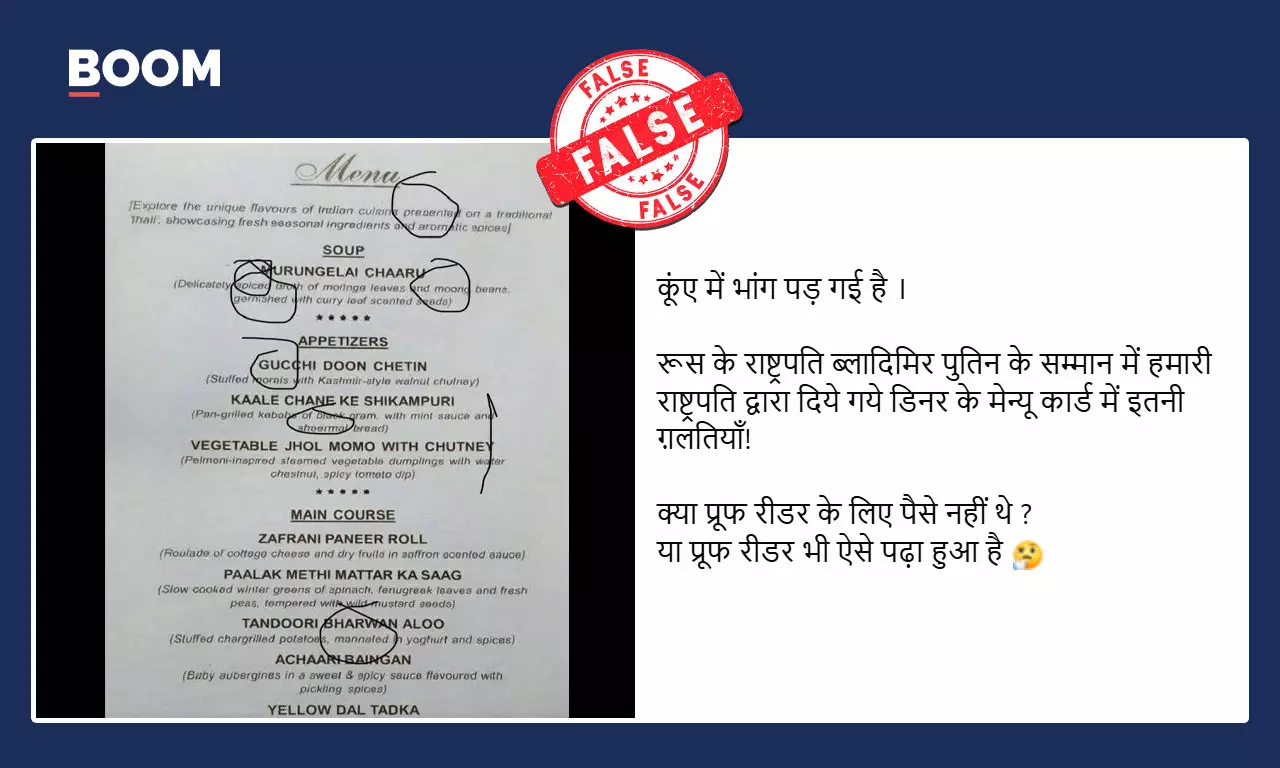 BOOM
FALSE
FALSE
FALSE
Menu
[Explore the unique flavours of Indian cuizine presented on a traditional
'thali', showcasing fresh seasonal ingredients and aromatic spices]
SOUP
MURUNGELAI CHAARU
(Delicately spiced broth of moringa leaves and moong beans,
gernished with curry leaf scented seeds)
*****
APPETIZERS
GUCCHI DOON CHETIN
(Stuffed morrils with Kashmir-style walnut chutney)
KAALE CHANE KE SHIKAMPURI
(Pan-grilled kebabs of black gram, with mint sauce and
sheermal bread)
VEGETABLE JHOL MOMO WITH CHUTNEY
(Pelmeni-inspired steamed vegetable dumplings with water
chestnut, spicy tometo dip)
*****
MAIN COURSE
ZAFRANI PANEER ROLL
(Roulade of cottage cheese and dry fruits in saffron scented sauce)
PAALAK METHI MATTAR KA SAAG
(Slow cooked winter greens of spinach, fenugreek leaves and fresh
peas, tempered with wild mustard seeds)
TANDOORI BHARWAN ALOO
(Stuffed chargrilled potatoes, in yoghurt and spices)
ACHAARI BAINGAN
(Baby aubergines in a sweet & spicy sauce flavoured with
pickling spices)
YELLOW DAL TADKA
कूंए में भांग पड़ गई है ।
रूस के राष्ट्रपति ब्लादिमिर पुतिन के सम्मान में हमारी
राष्ट्रपति द्वारा दिये गये डिनर के मेन्यू कार्ड में इतनी
ग़लतियाँ!
क्या प्रूफ रीडर के लिए पैसे नहीं थे ?
या प्रूफ रीडर भी ऐसे पढ़ा हुआ है 🤔